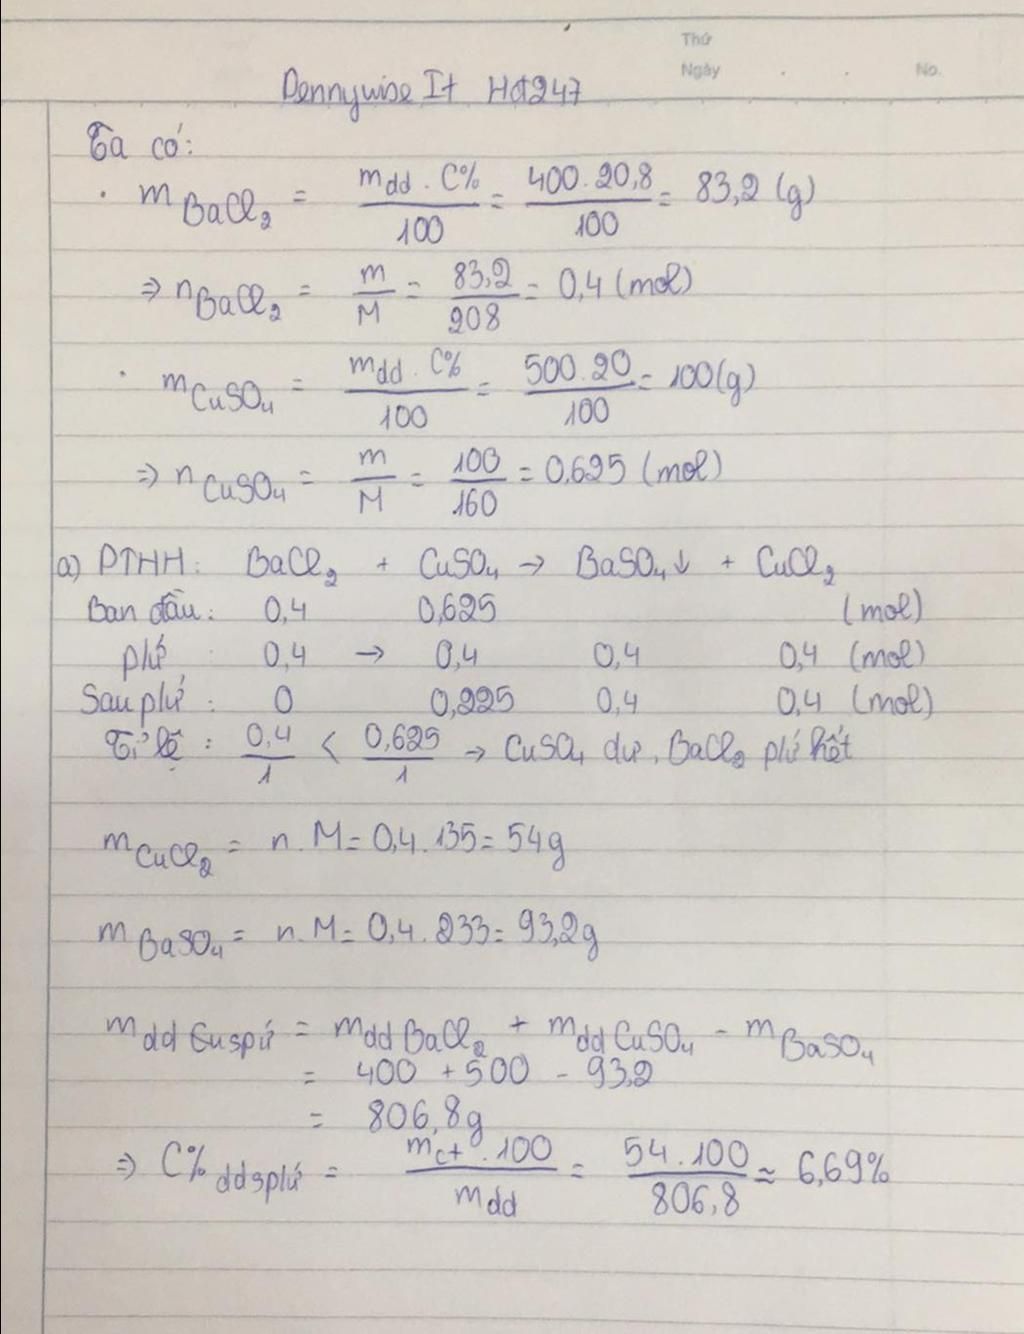 Thứ
Ngày . . No.
Pennywise It Hd247
Ta có:
· m BaCl₂ = mdd . C% / 100 = 400.20,8 / 100 = 83,2 (g)
⇒ n BaCl₂ = m / M = 83,2 / 208 = 0,4 (mol)
· m CuSO₄ = mdd . C% / 100 = 500.20 / 100 = 100(g)
⇒ n CuSO₄ = m / M = 100 / 160 = 0,625 (mol)
a) PTHH: BaCl₂ + CuSO₄ → BaSO₄↓ + CuCl₂
Ban đầu: 0,4 0,625 (mol)
phứ : 0,4 → 0,4 0,4 0,4 (mol)
Sau phứ : 0 0,225 0,4 0,4 (mol)
Tỉ lệ : 0,4 / 1 < 0,625 / 1 → CuSO₄ dư, BaCl₂ phứ hết
m CuCl₂ = n . M = 0,4 . 135 = 54g
m BaSO₄ = n . M = 0,4 . 233 = 93,2g
mdd = mdd BaCl₂ + mdd CuSO₄ - m BaSO₄
= 400 + 500 - 93,2
= 806,8g
⇒ C% ddsphứ = mct . 100 / mdd = 54 . 100 / 806,8 ≈ 6,69%